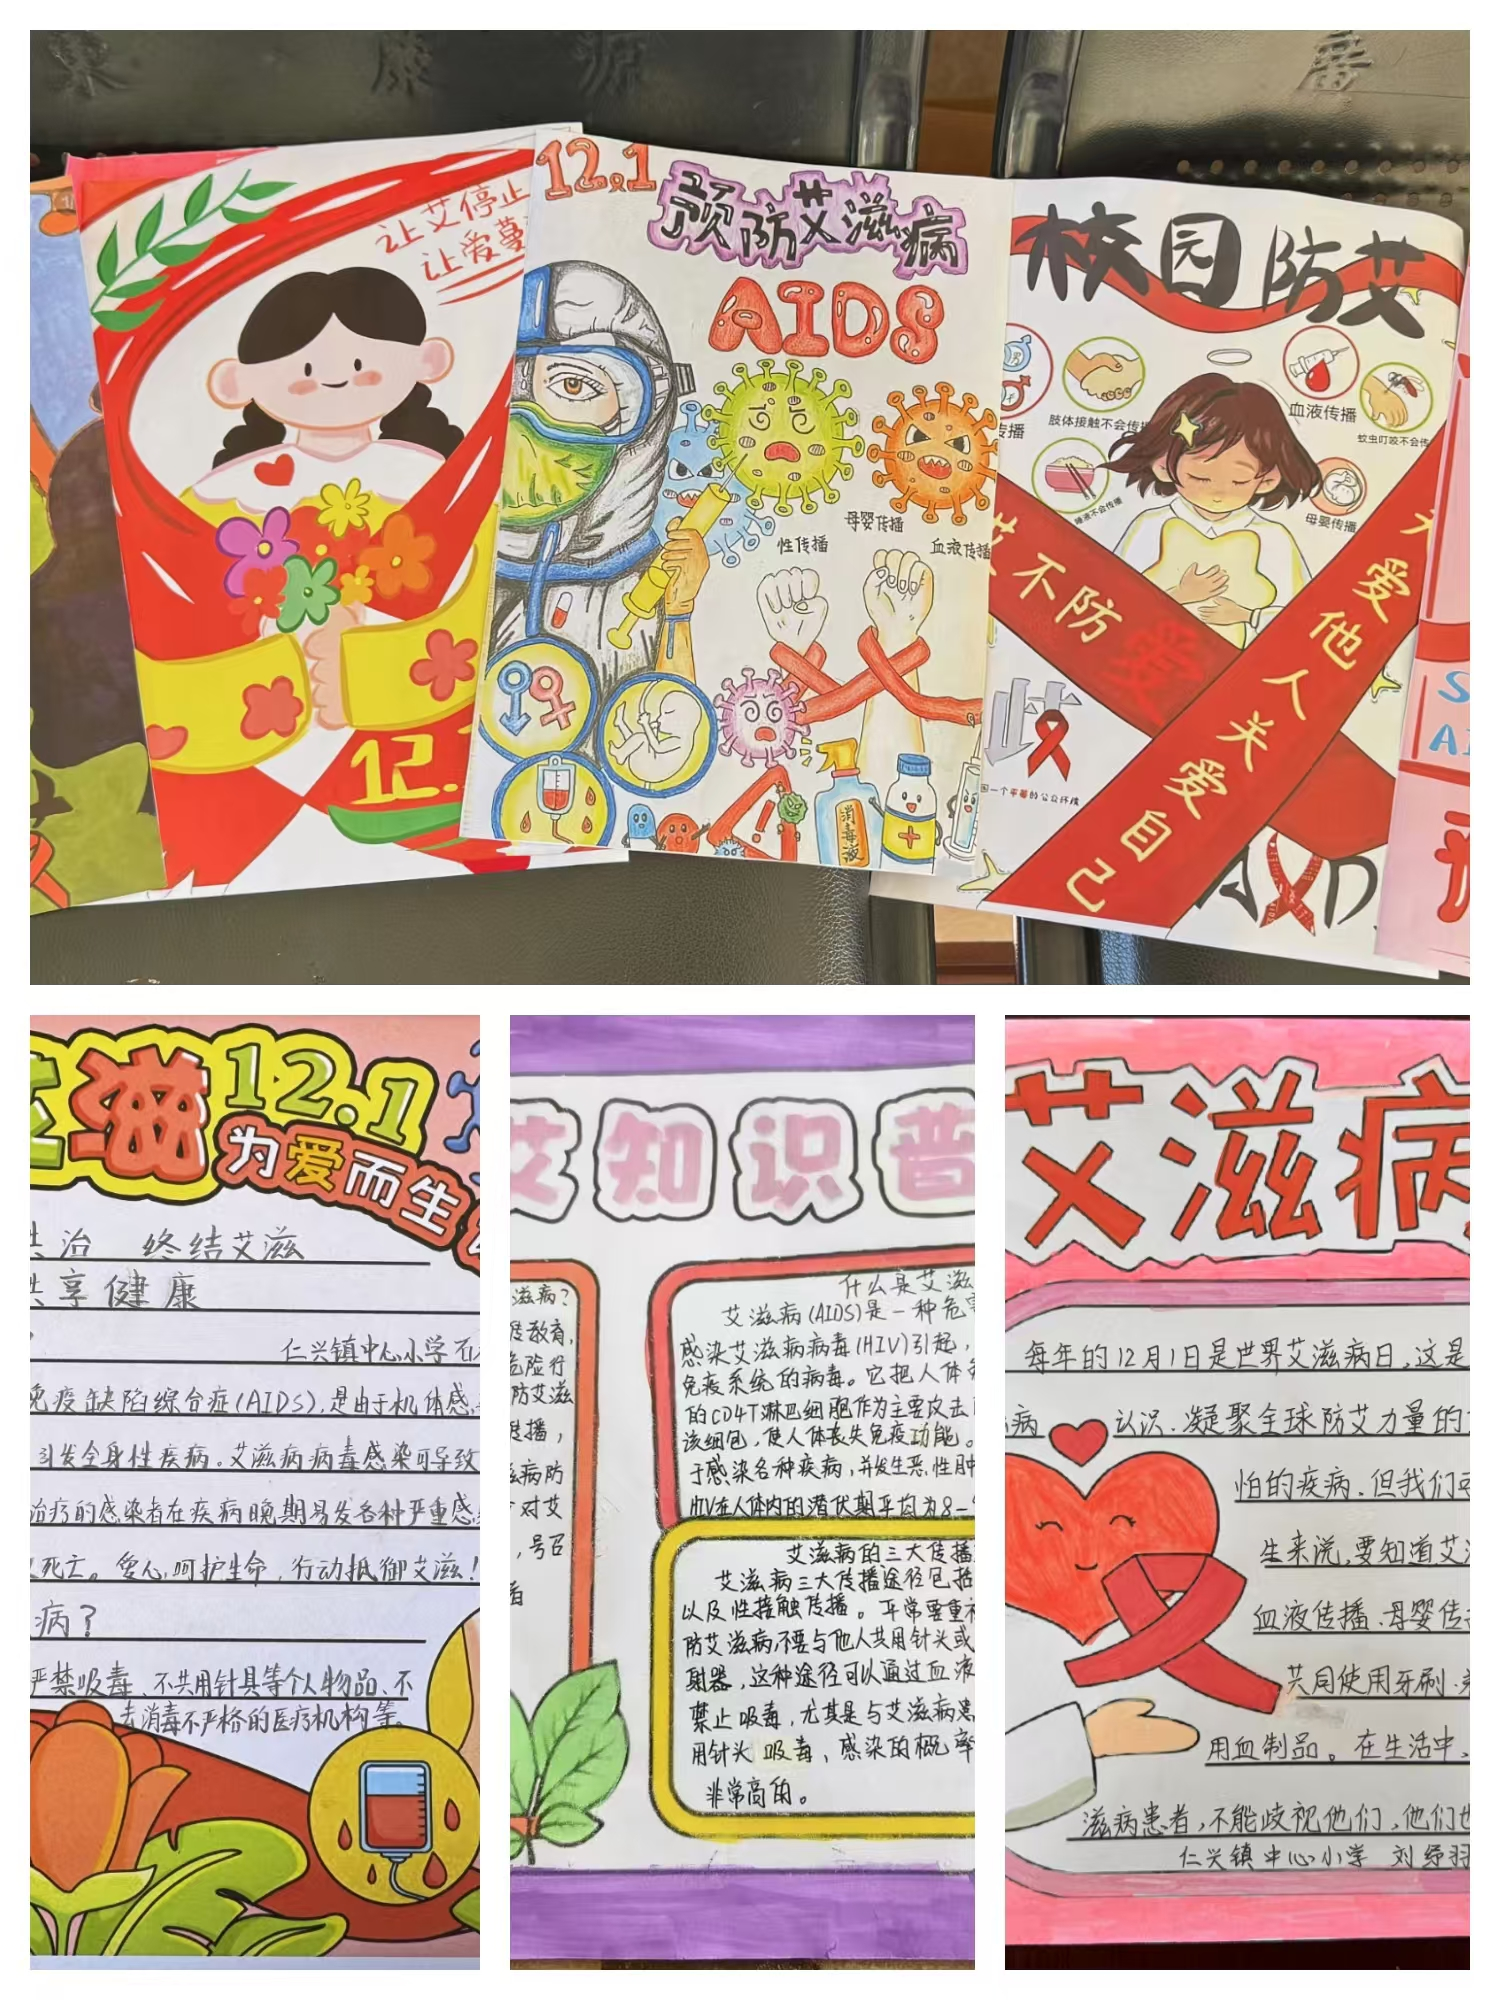 康
源
让艾停止
让爱蔓
12.
12.1
预防艾滋病
AIDS
性传播
母婴传播
血液传播
消毒液
校园防艾
传播
肢体接触不会传播
血液传播
蚊虫叮咬不会传
唾液不会传播
母婴传播
艾不防爱
关爱他人关爱自己
歧
一个平等的公众环境
AXD
S
AI
艾滋12.1
为爱而生
共治 终结艾滋
共享健康
仁兴镇中心小学石
免疫缺陷综合症(AIDS),是由于机体感
引发全身性疾病。艾滋病病毒感染可导致
治疗的感染者在疾病晚期易发各种严重感
死亡。爱心呵护生命,行动抵御艾滋!
病?
严禁吸毒、不共用针具等个人物品、不
去消毒不严格的医疗机构等。
艾知识普
滋病?
教育,
危险行
防艾滋
播,
病防
对艾
,号召
什么是艾滋
艾滋病(AIDS)是一种危害
感染艾滋病病毒(HIV)引起,
免疫系统的病毒。它把人体
的CD4T淋巴细胞作为主要攻击
该细包,使人体丧失免疫功能。
于感染各种疾病,并发生恶性肿
HIV在人体内的潜伏期平均为8-
艾滋病的三大传播
艾滋病三大传播途径包括
以及性接触传播。平常要重视
防艾滋病,不要与他人共用针头或
射器,这种途径可以通过血液
禁止吸毒,尤其是与艾滋病患
用针头吸毒,感染的概率
非常高的。
艾滋病
每年的12月1日是世界艾滋病日,这是
病 认识、凝聚全球防艾力量的
怕的疾病,但我们
生来说,要知道艾
血液传播、母婴传
共同使用牙刷、
用血制品。在生活中、
滋病患者,不能歧视他们,他们也
仁兴镇中心小学 刘